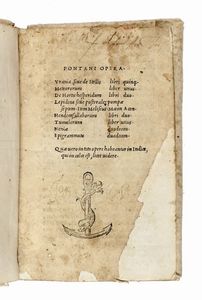 PONTANI OPERA.
Vrania, siue de Stellis libri quinq;
Meteororum liber unus
De Hortis hesperidum libri duo
Lepidina siue pastorales pompæ
septem. Item Meliseus. Mæon. Acon
Hendecasyllaborum libri duo
Tumulorum liber unus
Neniæ duodecim
Epigrammata duodecim
Quæ uero in toto opere habeantur in Indice,
qui in calce est, licet uidere.